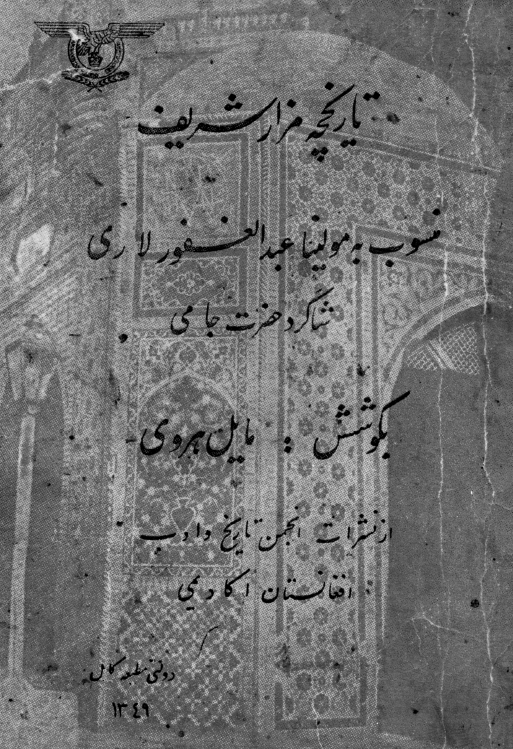 تاریخچه مزار شریف
منسوب به مولینا عبدالغفور لاری
شاگرد حضرت جامی
بکوشش : مایل هروی
از نشرات انجمن تاریخ و ادب
افغانستان اکادیمی
دولتی مطبعه کابل
۱۳۴۹